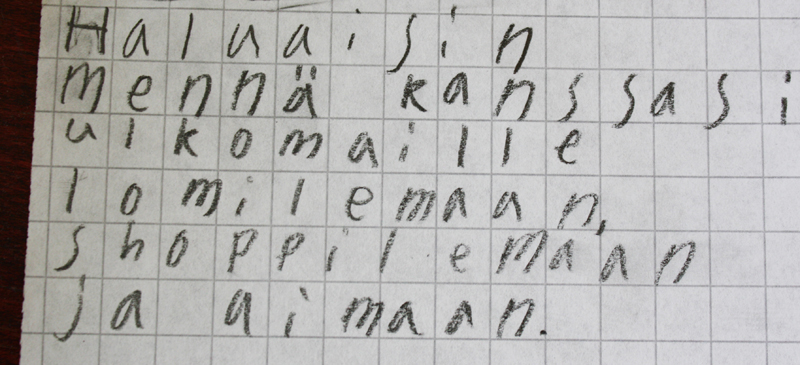 Haluaisin
mennä kanssasi
ulkomaille
lomilemaan,
shoppilemaan
ja uimaan.